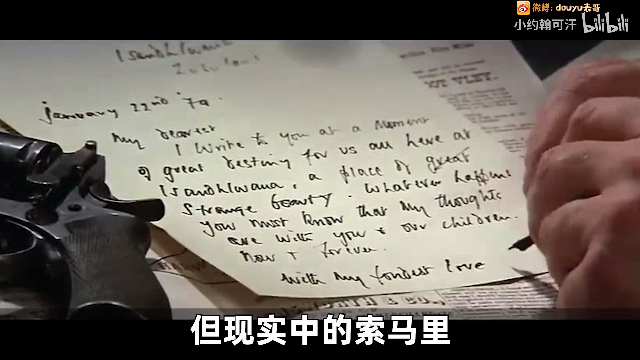 微博: douyu老哥
小约翰可汗 bilibili
Isandhlwana
Zululand
January 22nd '79.
My dearest
I write to you at a moment
of great destiny for us all here at
Isandhlwana, a place of great
strange beauty. Whatever happens
you must know that my thoughts
are with you & our children.
Now & forever.
With my fondest love
但现实中的索马里